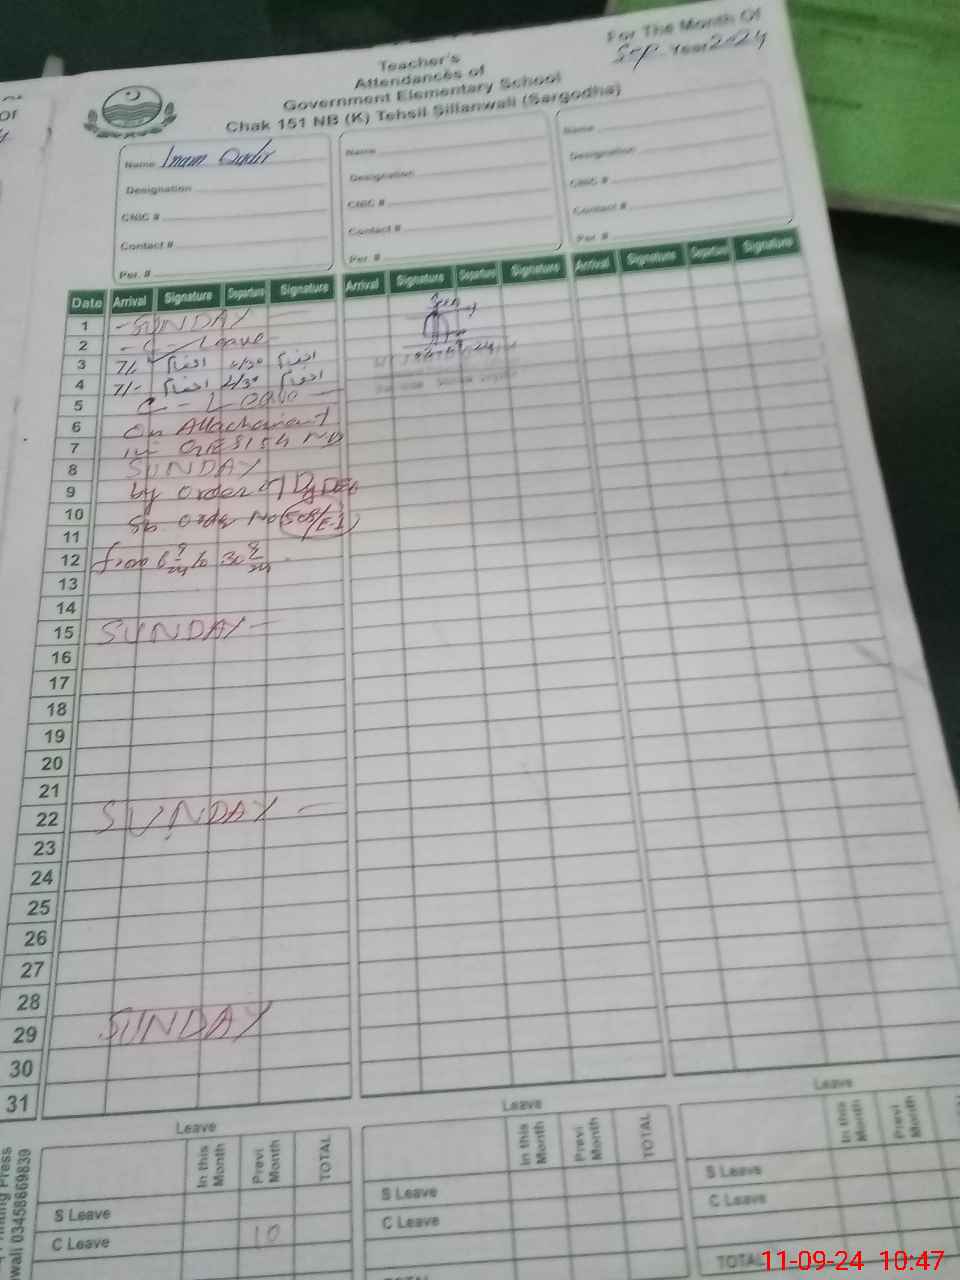 For The Month Of
Sep Year 2024
Teacher's
Attendances of
Government Elementary School
Chak 151 NB (K) Tehsil Sillanwali (Sargodha)
Name Inam Qadir
Designation
CNIC #
Contact #
Per. #
Name
Designation
CNIC #
Contact #
Per. #
Name
Designation
CNIC #
Contact #
Per. #
Date Arrival Signature Separture Signature Arrival Signature Separture Signature Arrival Signature Separture Signature
1 - SUNDAY -
2 - C - Leave
3 4/30
4 7/- 4/30
5 C - Leave -
6 On Attachment
7 in GHS 154 NB
8 SUNDAY
9 by order of Dy DEO
10 order No 508/E-1
11
12 from 6 9/24 to 30 9/24
13
14
15 SUNDAY -
16
17
18
19
20
21
22 SUNDAY -
23
24
25
26
27
28
29 SUNDAY
30
31
Leave
In this Month
Previ Month
TOTAL
S Leave
C Leave 10
Leave
In this Month
Previ Month
TOTAL
S Leave
C Leave
TOTAL
Leave
In this Month
Previ Month
S Leave
C Leave
TOTAL
Press
wali 03458669839
11-09-24 10:47